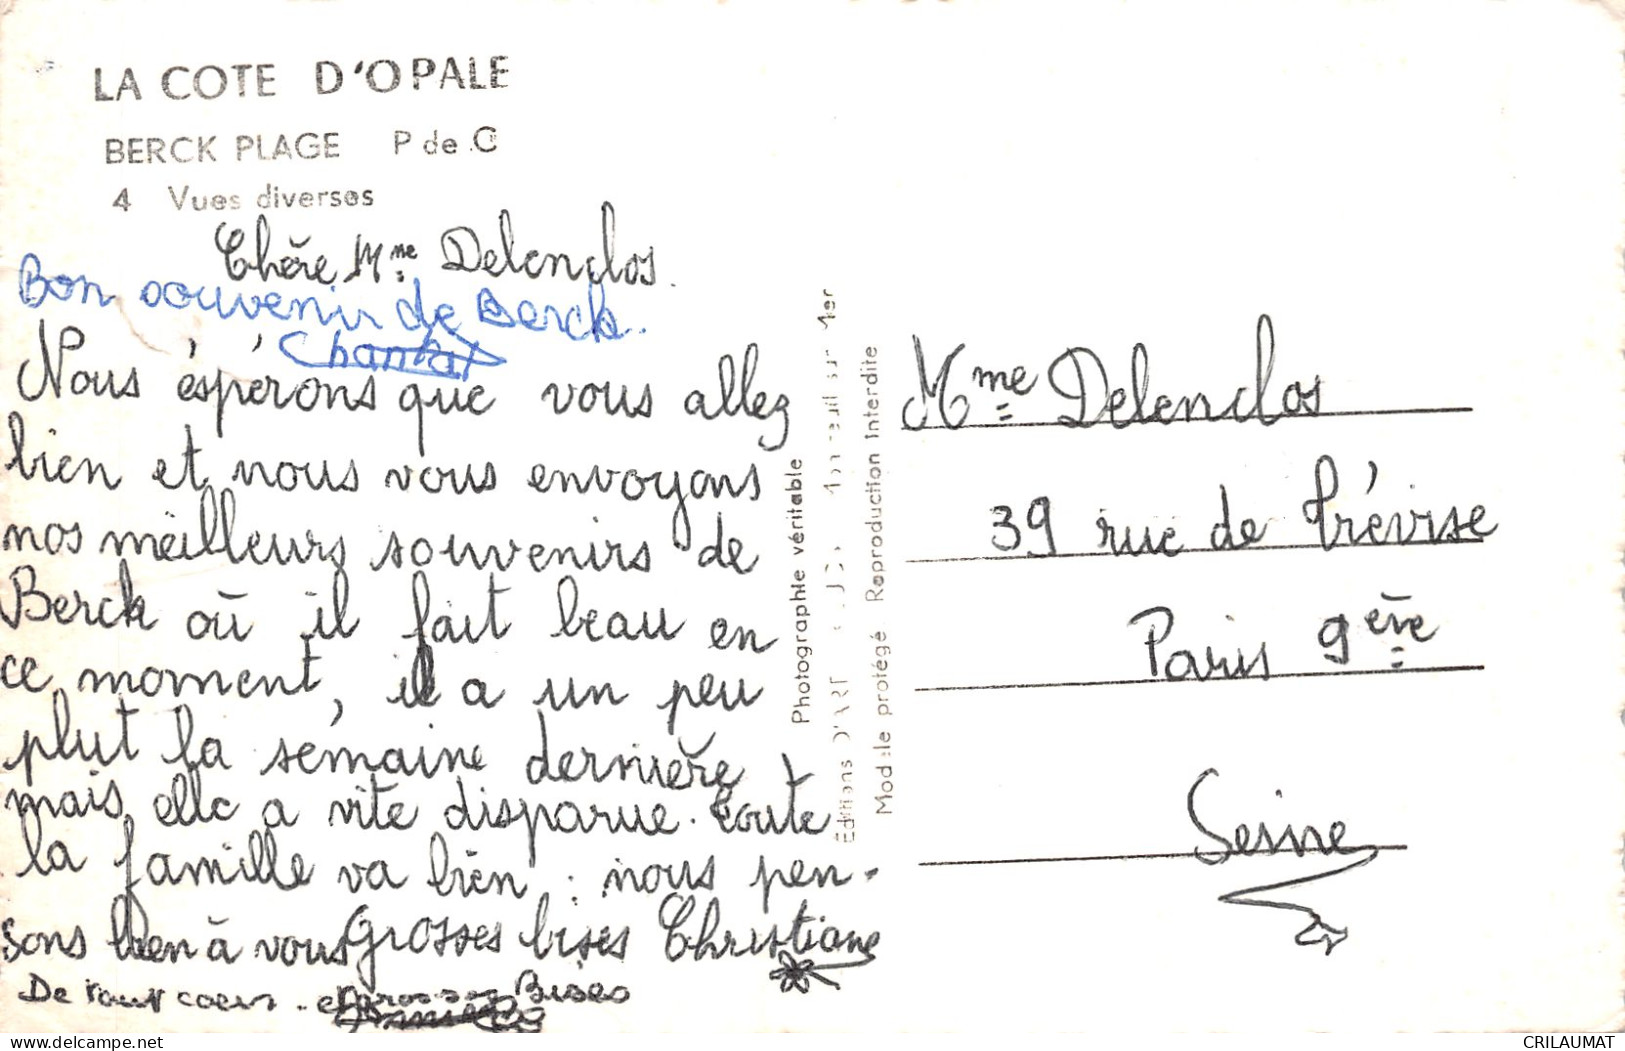 LA COTE D'OPALE
BERCK PLAGE P de C
4 Vues diverses
Chère Mme Delenclos.
Bon souvenir de Berck.
Chantal
Nous éspérons que vous allez
bien et nous vous envoyons
nos meilleurs souvenirs de
Berck où il fait beau en
ce moment, il a un peu
plut la semaine dernière
mais, elle a vite disparue. Toute
la famille va bien ; nous pen-
sons bien à vous Grosses bises Christiane
De tout coeur. et Grosses Bises
Photographie véritable
Éditions D'ART
Modèle protégé Reproduction Interdite
Mme Delenclos
39 rue de Trévise
Paris 9ère
Seine
delcampe.net
CRILAUMAT